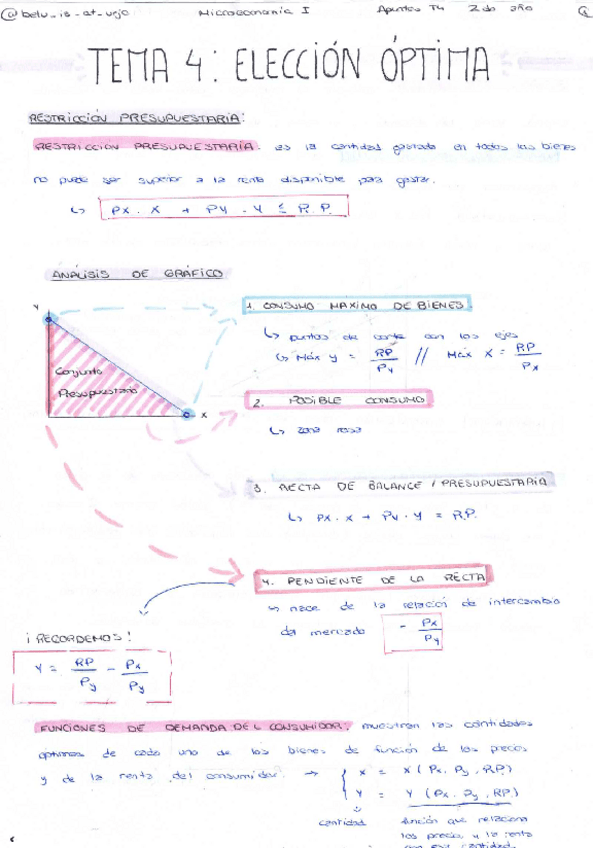 @belu_is_at_urjo Microeconomía I Apuntes T4 2do año
TEMA 4: ELECCIÓN ÓPTIMA
RESTRICCIÓN PRESUPUESTARIA:
RESTRICCIÓN PRESUPUESTARIA: es la cantidad gastada en todos los bienes
no puede ser superior a la renta disponible para gastar.
↳ Px · X + Py · Y ≤ R.P.
ANÁLISIS DE GRÁFICO
Y
Conjunto
Presupuestario
X
1. CONSUMO MAXIMO DE BIENES.
↳ puntos de corte con los ejes
↳ Máx Y = RP/Py // Máx X = RP/Px
2. POSIBLE CONSUMO
↳ zona rosa
3. RECTA DE BALANCE / PRESUPUESTARIA
↳ Px · X + Py · Y = R.P.
4. PENDIENTE DE LA RECTA
↳ nace de la relación de intercambio
del mercado - Px/Py
¡RECORDEMOS!
Y = RP/Py - Px/Py
FUNCIONES DE DEMANDA DEL CONSUMIDOR: muestran las cantidades
óptimas de cada uno de los bienes de función de los precios
y de la renta del consumidor. → { X = X (Px, Py, RP)
Y = Y (Px, Py, RP)
cantidad función que relaciona
los precios y la renta
con esa cantidad